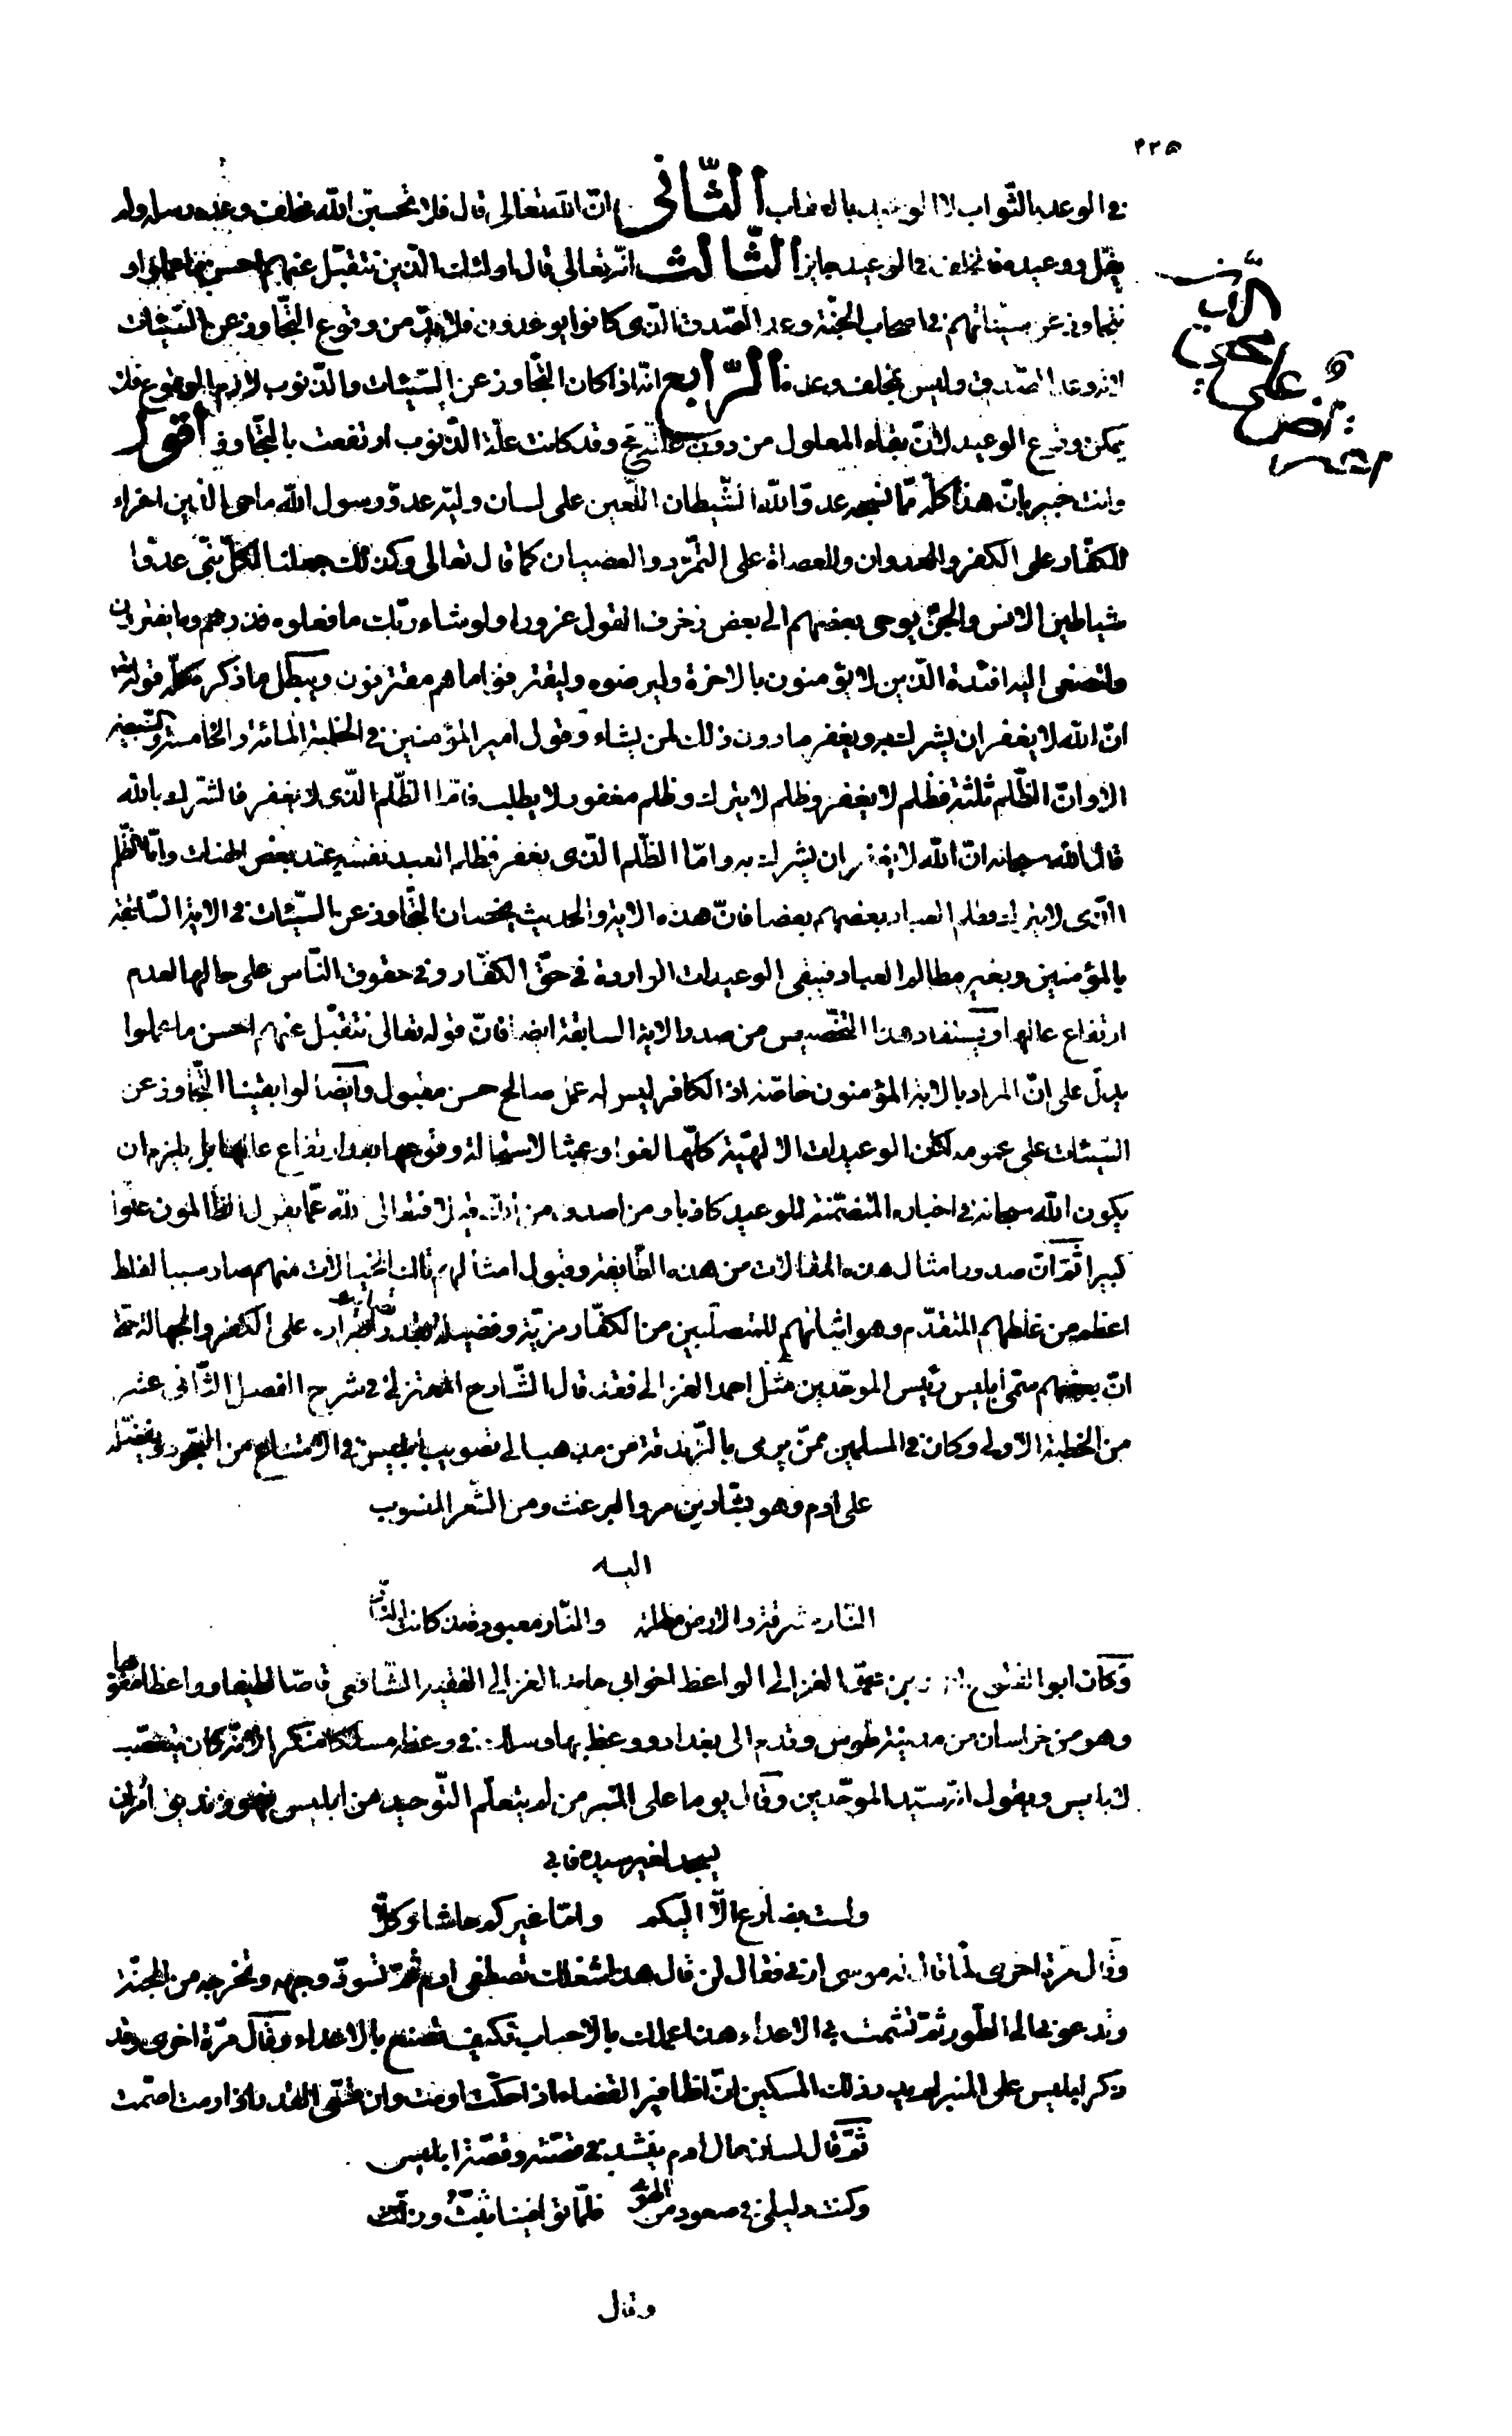 ٤٢٥
في الوعد بالثّواب لا الوعيد بالعقاب الثّاني انّ الله تعالى قال فلا تحسبنّ الله مخلف وعده رسله ولم
يقل ووعيده فالخلف في الوعيد جايز الثّالث انّه تعالى قال اولئك الّذين نتقبّل عنهم احسن ما عملوا و
نتجاوز عن سيّئاتهم في اصحاب الجنّة وعد الصّدق الّذي كانوا يوعدون فلا بدّ من وقوع التّجاوز عن السّيّئات
لانه وعد الصّدق وليس يخلف وعده الرّابع انّه اذا كان التّجاوز عن السّيّئات والذّنوب لازم الوقوع فلا
يمكن وقوع الوعيد لانّ بقاء المعلول من دون علّته محال وقد كانت علّة الذّنوب ارتفعت بالتّجاوز اقول
وانت خبير بانّ هذا كلّه ممّا نسجه عدوّ الله الشّيطان اللّعين على لسان وليّه عدوّ رسول الله ماحي الدّين اغراء
للكفّار على الكفر والعدوان وللعصاة على التّمرّد والعصيان كما قال تعالى وكذلك جعلنا لكلّ نبيّ عدوّا
شياطين الانس والجنّ يوحى بعضهم الى بعض زخرف القول غرورا ولو شاء ربّك ما فعلوه فذرهم وما يفترون
ولتصغى اليه افئدة الّذين لا يؤمنون بالاخرة وليرضوه وليقترفوا ما هم مقترفون ويبطل ما ذكر كلّه قوله تعالى
انّ الله لا يغفر ان يشرك به ويغفر ما دون ذلك لمن يشاء وقول امير المؤمنين في الخطبة المائة والخامسة والسّبعين
الا وانّ الظّلم ثلثة فظلم لا يغفر وظلم لا يترك وظلم مغفور لا يطلب فامّا الظّلم الّذي لا يغفر فالشّرك بالله
قال الله سبحانه انّ الله لا يغفر ان يشرك به وامّا الظّلم الّذي يغفر فظلم العبد نفسه عند بعض الهنات وامّا الظّلم
الّذي لا يترك فظلم العباد بعضهم بعضا فانّ هذه الاية والحديث يخصّان التّجاوز عن السّيّئات في الاية السّابقة
بالمؤمنين وبغير مظالم العباد فيبقى الوعيدات الواردة في حقّ الكفّار وفي حقوق النّاس على حالها لعدم
ارتفاع علّتها ويستفاد هذا التّخصيص من صدر الاية السابقة ايضا فانّ قوله تعالى نتقبّل عنهم احسن ما عملوا
يدلّ على انّ المراد بالاية المؤمنون خاصّة اذ الكافر ليس له عمل صالح حسن مقبول وايضا لو ابقينا التّجاوز عن
السّيّئات على عمومه لكان الوعيدات الالهيّة كلّها لغوا وعبثا لاستحالة وقوعها بعد ارتفاع علّتها بل يلزم ان
يكون الله سبحانه في اخباره المتضمّنة للوعيد كاذبا ومن اصدق من الله قيلا فتعالى الله عمّا يقول الظّالمون علوّا
كبيرا ثمّ انّ صدور امثال هذه المقالات من هذه الطّايفة وقبول امثالهم تلك الخيالات منهم صار سببا لغلط
اعظم من غلطهم المتقدّم وهو اثباتهم للمتصلّبين من الكفّار مزيّة وفضيلة على الكفر والجهالة حتّى
انّ بعضهم سمّى ابليس رئيس الموحّدين مثل احمد الغزالي فقد قال الشّارح المعتزلي في شرح الفصل الثّاني عشر
من الخطبة الاولى وكان في المسلمين ممّن يرمى بالزّندقة من مذهبه الى تصويب ابليس في الامتناع من السّجود ويفضّله
على ادم وهو بشّار بن برد المرعث ومن الشّعر المنسوب
اليه
النّار مشرقة والارض مظلمة والنّار معبودة مذ كانت النّار
وكان ابو الفتوح بن محمّد الغزالي الواعظ اخو ابي حامد الغزالي الفقيه الشّافعي قاصّا لطيفا وواعظا مفوّها
وهو من خراسان من مدينة طوس وقدم الى بغداد ووعظ بها وسلك في وعظه مسلكا منكرا لانّه كان يتعصّب
لابليس ويقول انّه سيّد الموحّدين وقال يوما على المنبر من لم يتعلّم التّوحيد من ابليس فهو زنديق امر ان
يسجد لغير سيده فابى
ولست بضارع الّا اليكم وامّا غيركم حاشا وكلّا
وقال مرّة اخرى لمّا قال له موسى ارني فقال لن قال هذا شغلك تصطفى ادم ثمّ تسوّد وجهه وتخرجه من الجنّة
وتدعوني الى الطّور ثمّ تشمت بي الاعداء هذا عملك بالاحباب فكيف تصنع بالاعداء وقال مرّة اخرى وقد
ذكر ابليس على المنبر لم يدر ذلك المسكين انّ اظافير القضاء اذا حكّت ادمت وانّ قسيّ القدر اذا رمت اصمت
ثمّ قال لسان حال ادم ينشد في قصّته وقصّة ابليس
وكنت وليلى في صعود من الهوى فلمّا توافينا ثبتّ وزلّت
وقال